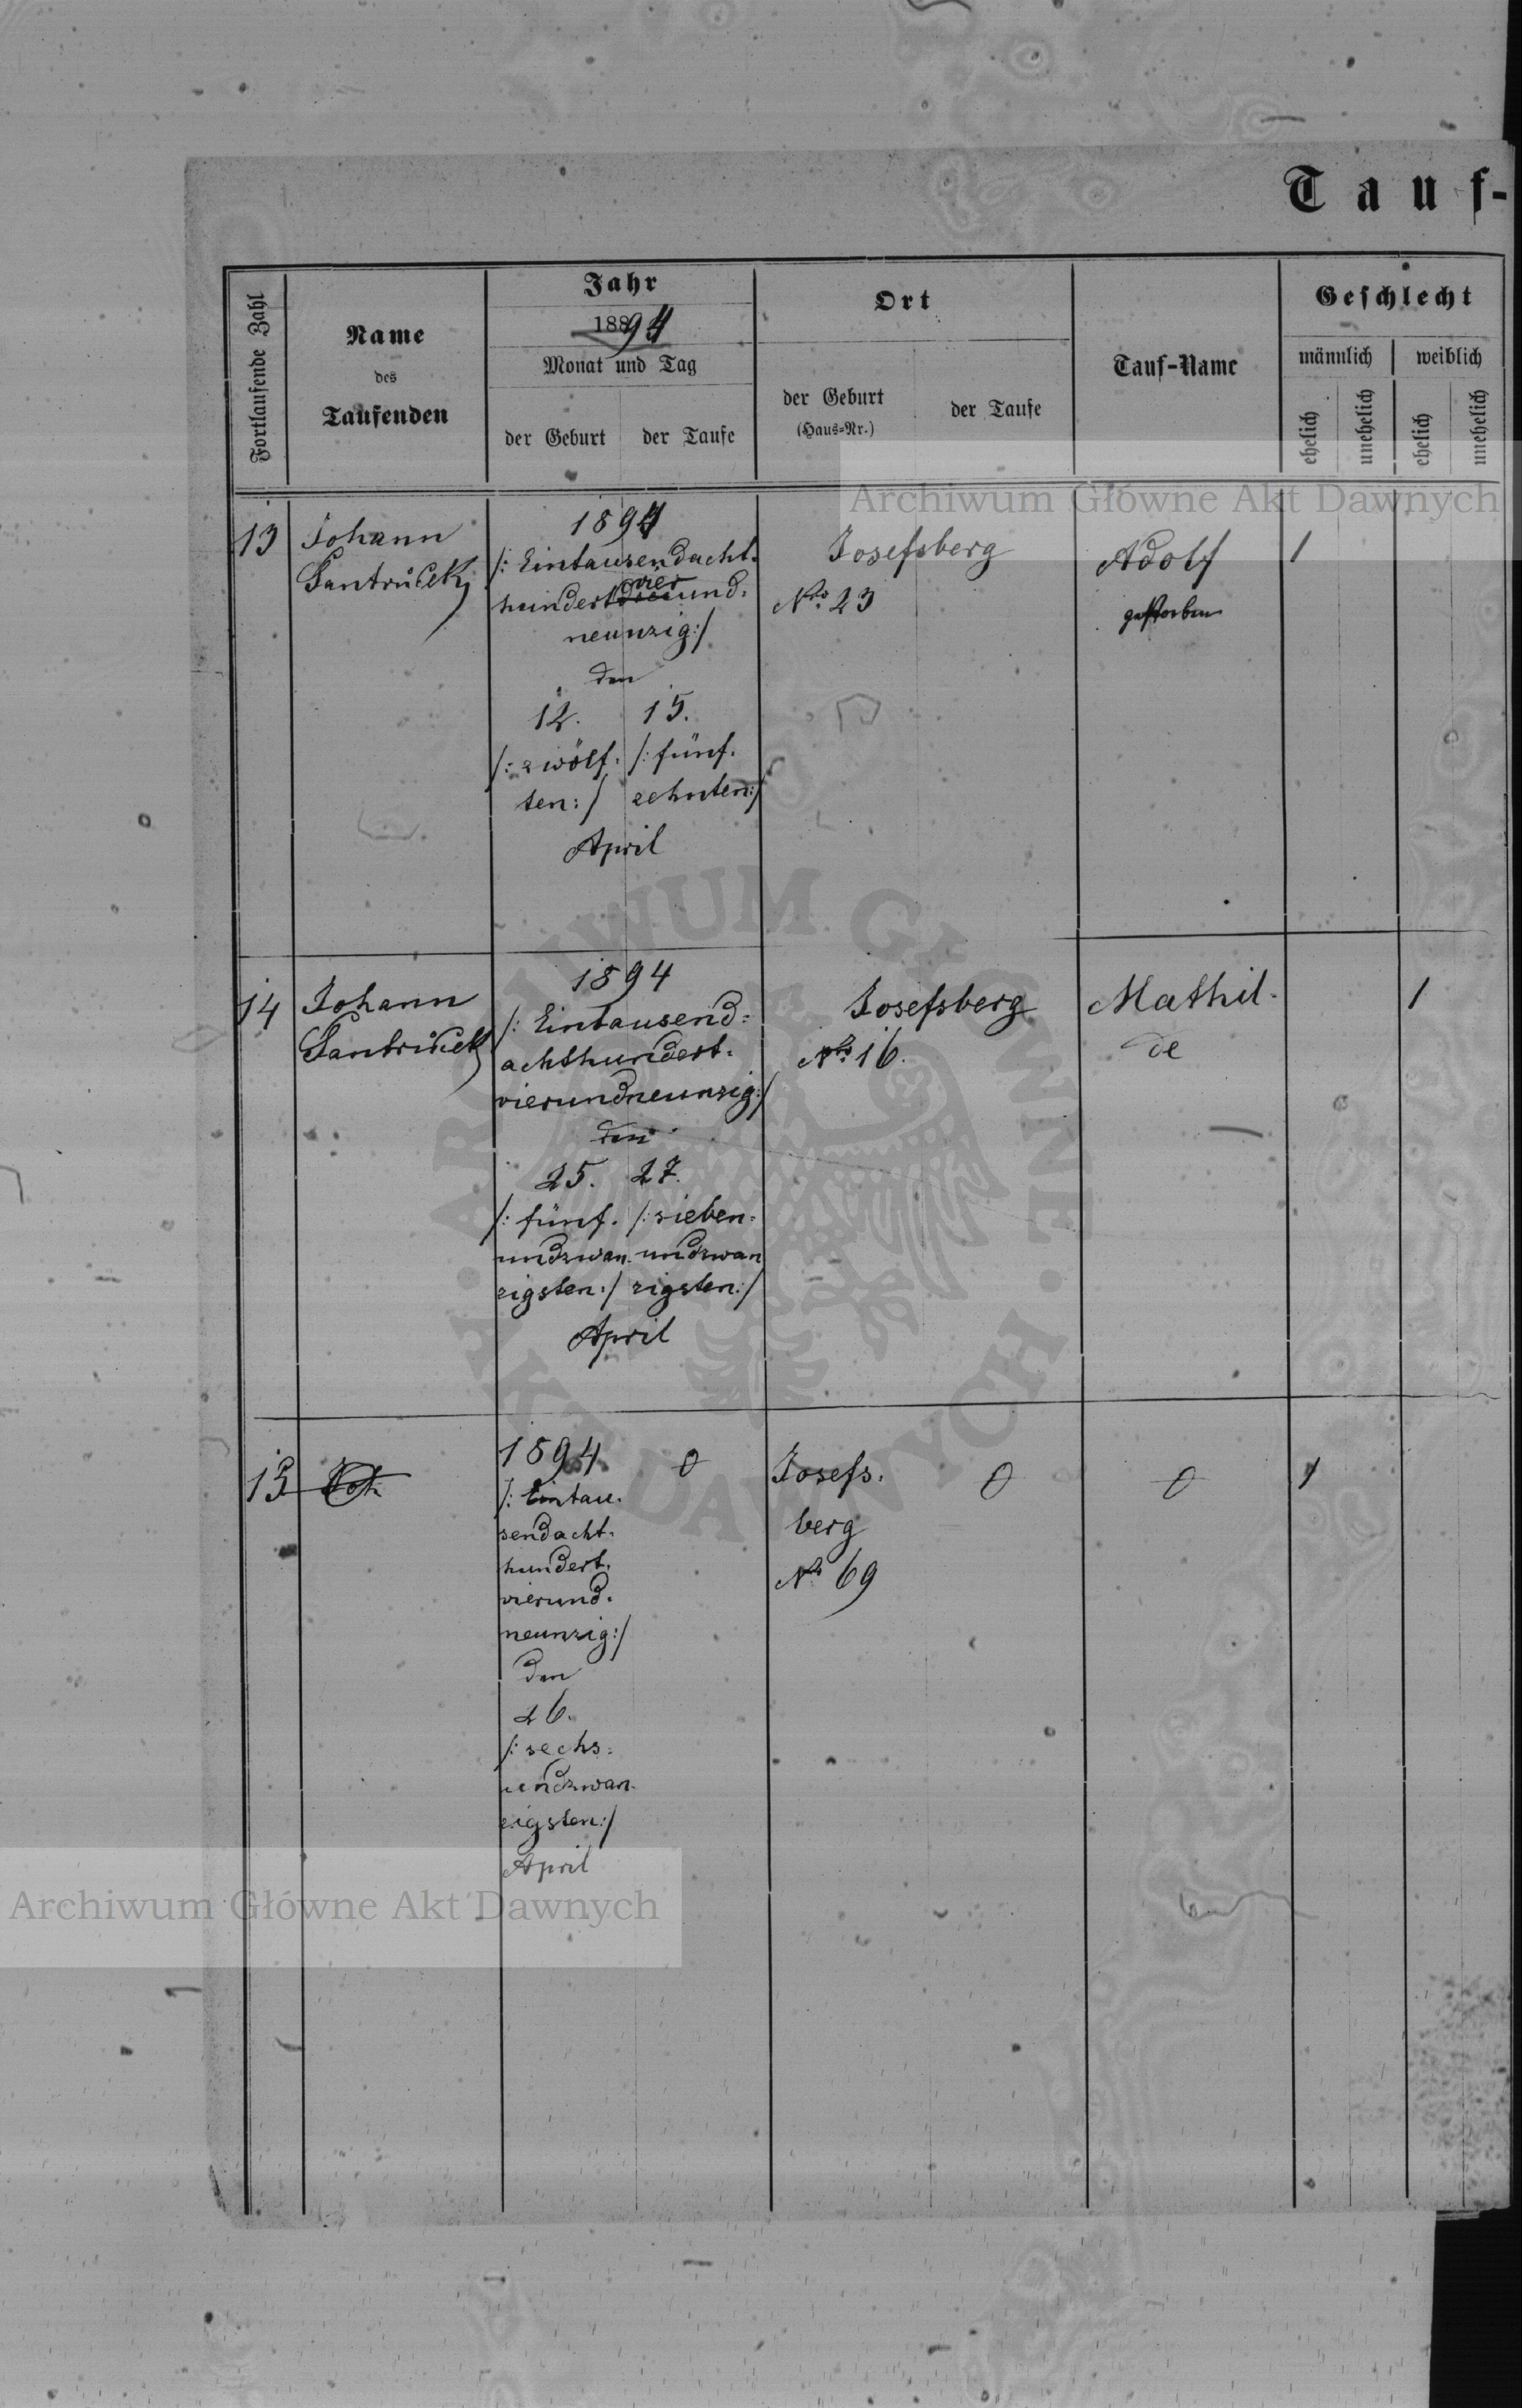 Tauf-
Fortlaufende Zahl
Name
des
Taufenden
Jahr
1894
Monat und Tag
der Geburt
der Taufe
Ort
der Geburt
(Haus-Nr.)
der Taufe
Tauf-Name
Geschlecht
männlich
weiblich
ehelich
unehelich
ehelich
unehelich
Archiwum Główne Akt Dawnych
13
Johann
1894
/: Eintausendacht-
hundert vier und-
neunzig :/
den
12.
/: zwölf-
ten :/
15.
/: fünf-
zehnten :/
April
Josefsberg
Nro. 23
Adolf
gestorben
1
14
Johann
1894
/: Eintausend=
achthundert-
vierundneunzig :/
den
25.
/: fünf-
undzwan-
zigsten :/
27.
/: sieben=
undzwan
zigsten :/
April
Josefsberg
Nro. 16.
Mathil-
de
1
15
1894
/: Eintau-
sendacht-
hundert-
vierund-
neunzig :/
den
26.
/: sechs=
undzwan-
zigsten :/
April
0
Josefs-
berg
No 69
0
0
1
ARCHIWUM GŁÓWNE AKT DAWNYCH
Archiwum Główne Akt Dawnych